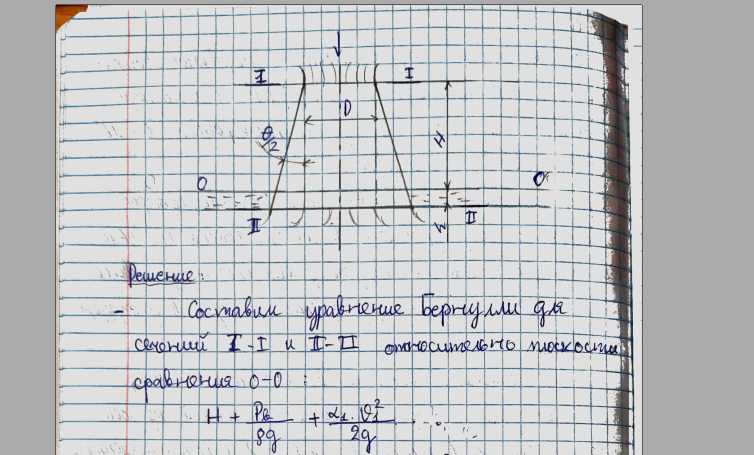 I I
D
θ/2
H
O O
h
II II
Решение:
- Составим уравнение Бернулли для
сечений I-I и II-II относительно плоскости
сравнения 0-0 :
H + Pв/ρg + α₁·υ₁²/2g ...